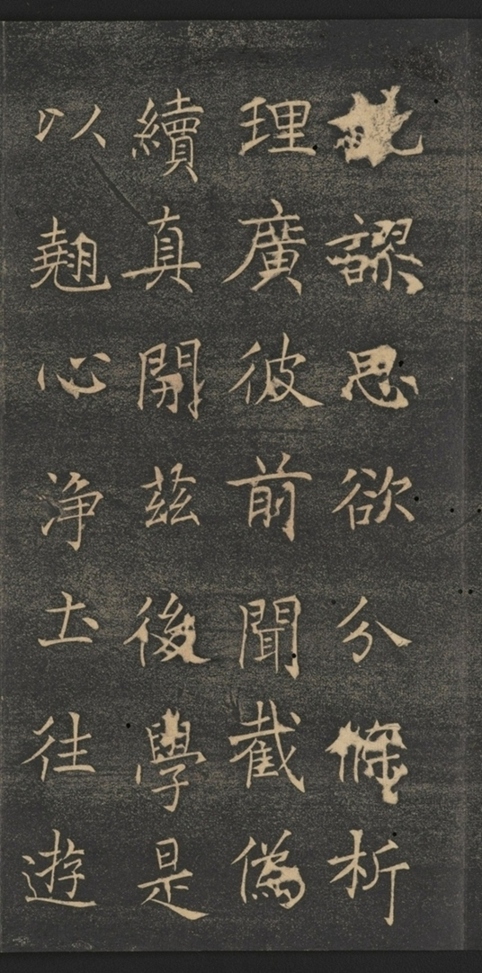 謬思欲分條析
理廣彼前聞截偽
續真開茲後學是
以翹心淨土往遊